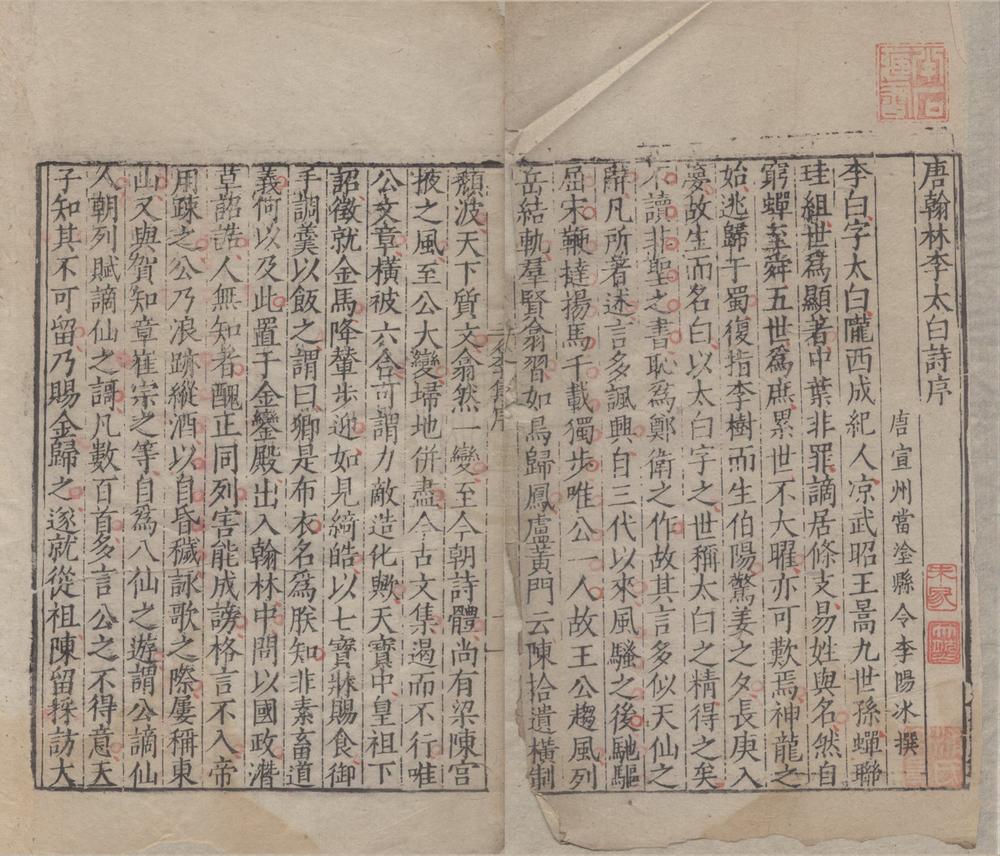 唐翰林李太白詩序
唐宣州當塗縣令李陽冰撰
李白字太白隴西成紀人凉武昭王暠九世孫蟬聯
珪組世爲顯著中葉非罪謫居條支易姓與名然自
窮蟬至舜五世爲庶累世不大曜亦可歎焉神龍之
始逃歸于蜀復指李樹而生伯陽驚姜之夕長庚入
夢故生而名白以太白字之世稱太白之精得之矣
不讀非聖之書恥爲鄭衛之作故其言多似天仙之
辭凡所著述言多諷興自三代以來風騷之後馳驅
屈宋鞭撻揚馬千載獨步唯公一人故王公趨風列
岳結軌羣賢翕習如鳥歸鳳盧黄門云陳拾遺横制
頹波天下質文翕然一變至今朝詩體尚有梁陳宫
掖之風至公大變埽地併盡今古文集遏而不行唯
公文章横被六合可謂力敵造化歟天寶中皇祖下
詔徵就金馬降輦步迎如見綺皓以七寶牀賜食御
手調羹以飯之謂曰卿是布衣名爲朕知非素畜道
義何以及此置于金鑾殿出入翰林中問以國政潛
草詔誥人無知者醜正同列害能成謗格言不入帝
用疎之公乃浪跡縱酒以自昏穢詠歌之際屢稱東
山又與賀知章崔宗之等自爲八仙之遊謂公謫仙
人朝列賦謫仙之謌凡數百首多言公之不得意天
子知其不可留乃賜金歸之遂就從祖陳留採訪大